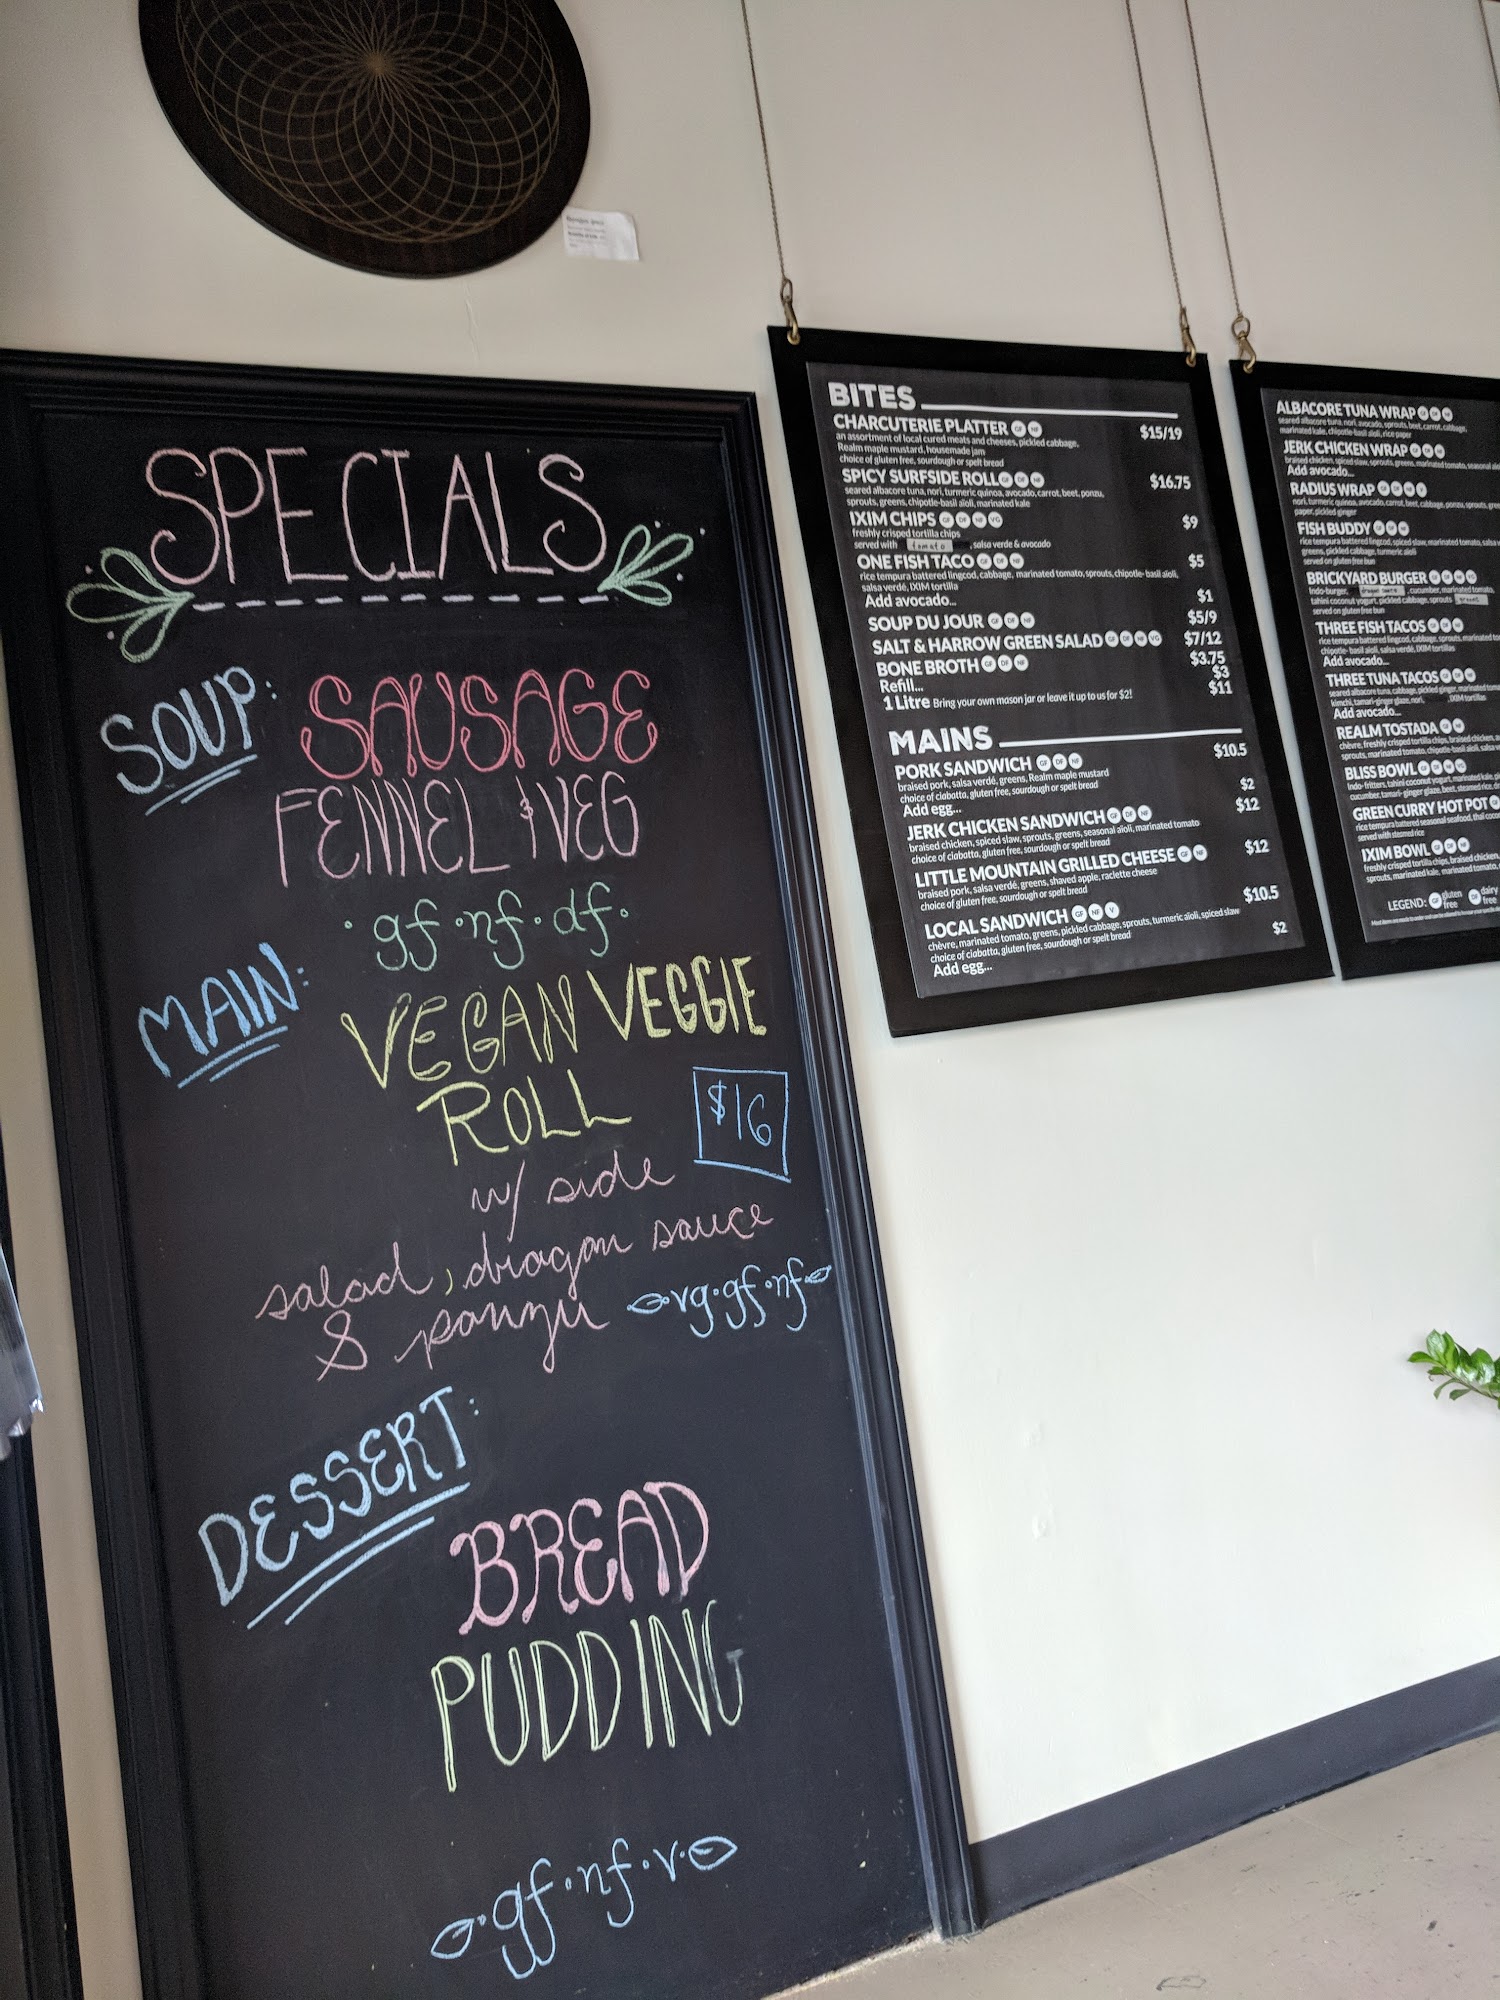 SPECIALS
SOUP: SAUSAGE
FENNEL & VEG
· gf · nf · df ·
MAIN: VEGAN VEGGIE
ROLL
$16
w/ side
salad, dragon sauce
& ponzu · vg · gf · nf ·
DESSERT:
BREAD
PUDDING
· gf · nf · v ·
BITES
CHARCUTERIE PLATTER GF NF $15/19
an assortment of local cured meats and cheeses, pickled cabbage,
Realm maple mustard, housemade jam
choice of gluten free, sourdough or spelt bread
SPICY SURFSIDE ROLL GF DF NF $16.75
seared albacore tuna, nori, turmeric quinoa, avocado, carrot, beet, ponzu,
sprouts, greens, chipotle-basil aioli, marinated kale
IXIM CHIPS GF DF NF VG $9
freshly crisped tortilla chips
served with tomato, salsa verde & avocado
ONE FISH TACO GF DF NF $5
rice tempura battered lingcod, cabbage, marinated tomato, sprouts, chipotle- basil aioli,
salsa verde, IXIM tortilla
Add avocado... $1
SOUP DU JOUR GF DF NF $5/9
SALT & HARROW GREEN SALAD GF DF NF VG $7/12
BONE BROTH GF DF NF $3.75
Refill... $3
1 Litre Bring your own mason jar or leave it up to us for $2! $11
MAINS
PORK SANDWICH GF DF NF $10.5
braised pork, salsa verdé, greens, Realm maple mustard
choice of ciabatta, gluten free, sourdough or spelt bread
Add egg... $2
JERK CHICKEN SANDWICH GF DF NF $12
braised chicken, spiced slaw, sprouts, greens, seasonal aioli, marinated tomato
choice of ciabatta, gluten free, sourdough or spelt bread
LITTLE MOUNTAIN GRILLED CHEESE GF NF $12
braised pork, salsa verdé, greens, shaved apple, raclette cheese
choice of gluten free, sourdough or spelt bread
LOCAL SANDWICH GF NF V $10.5
chèvre, marinated tomato, greens, pickled cabbage, sprouts, turmeric aioli, spiced slaw
choice of ciabatta, gluten free, sourdough or spelt bread
Add egg... $2
ALBACORE TUNA WRAP GF DF NF
seared albacore tuna, nori, avocado, sprouts, beet, carrot, cabbage,
marinated kale, chipotle-basil aioli, rice paper
JERK CHICKEN WRAP GF DF NF
braised chicken, spiced slaw, sprouts, greens, marinated tomato, seasonal
Add avocado...
RADIUS WRAP GF DF NF V
nori, turmeric quinoa, avocado, carrot, beet, cabbage, ponzu, sprouts,
paper, pickled ginger
FISH BUDDY GF DF NF
rice tempura battered lingcod, spiced slaw, marinated tomato, salsa
greens, pickled cabbage, turmeric aioli
served on gluten free bun
BRICKYARD BURGER GF DF NF VG
Indo-burger, cucumber, marinated tomato,
tahini coconut yogurt, pickled cabbage, sprouts
served on gluten free bun
THREE FISH TACOS GF DF NF
rice tempura battered lingcod, cabbage, sprouts, marinated
chipotle- basil aioli, salsa verdé, IXIM tortillas
Add avocado...
THREE TUNA TACOS GF DF NF
seared albacore tuna, cabbage, pickled ginger, marinated
kimchi, tamari-ginger glaze, nori, IXIM tortillas
Add avocado...
REALM TOSTADA GF DF NF
chèvre, freshly crisped tortilla chips, braised chicken,
sprouts, marinated tomato, chipotle-basil aioli, salsa
BLISS BOWL GF DF NF VG
Indo-fritters, tahini coconut yogurt, marinated kale,
cucumber, tamari- ginger glaze, beet, steamed rice,
GREEN CURRY HOT POT GF
rice tempura battered seasonal seafood, thai
served with steamed rice
IXIM BOWL GF DF NF
freshly crisped tortilla chips, braised chicken,
sprouts, marinated kale, marinated tomato,
LEGEND: GF gluten free DF dairy free